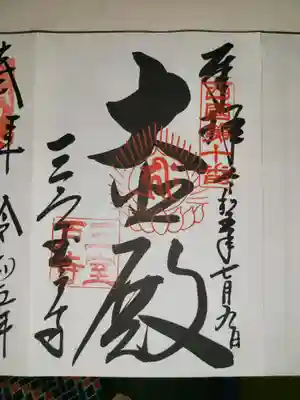 奉拝 令和五年七月九日
西国第十番
大悲殿
三室戸寺
三室戸寺
奉拝 令和五年